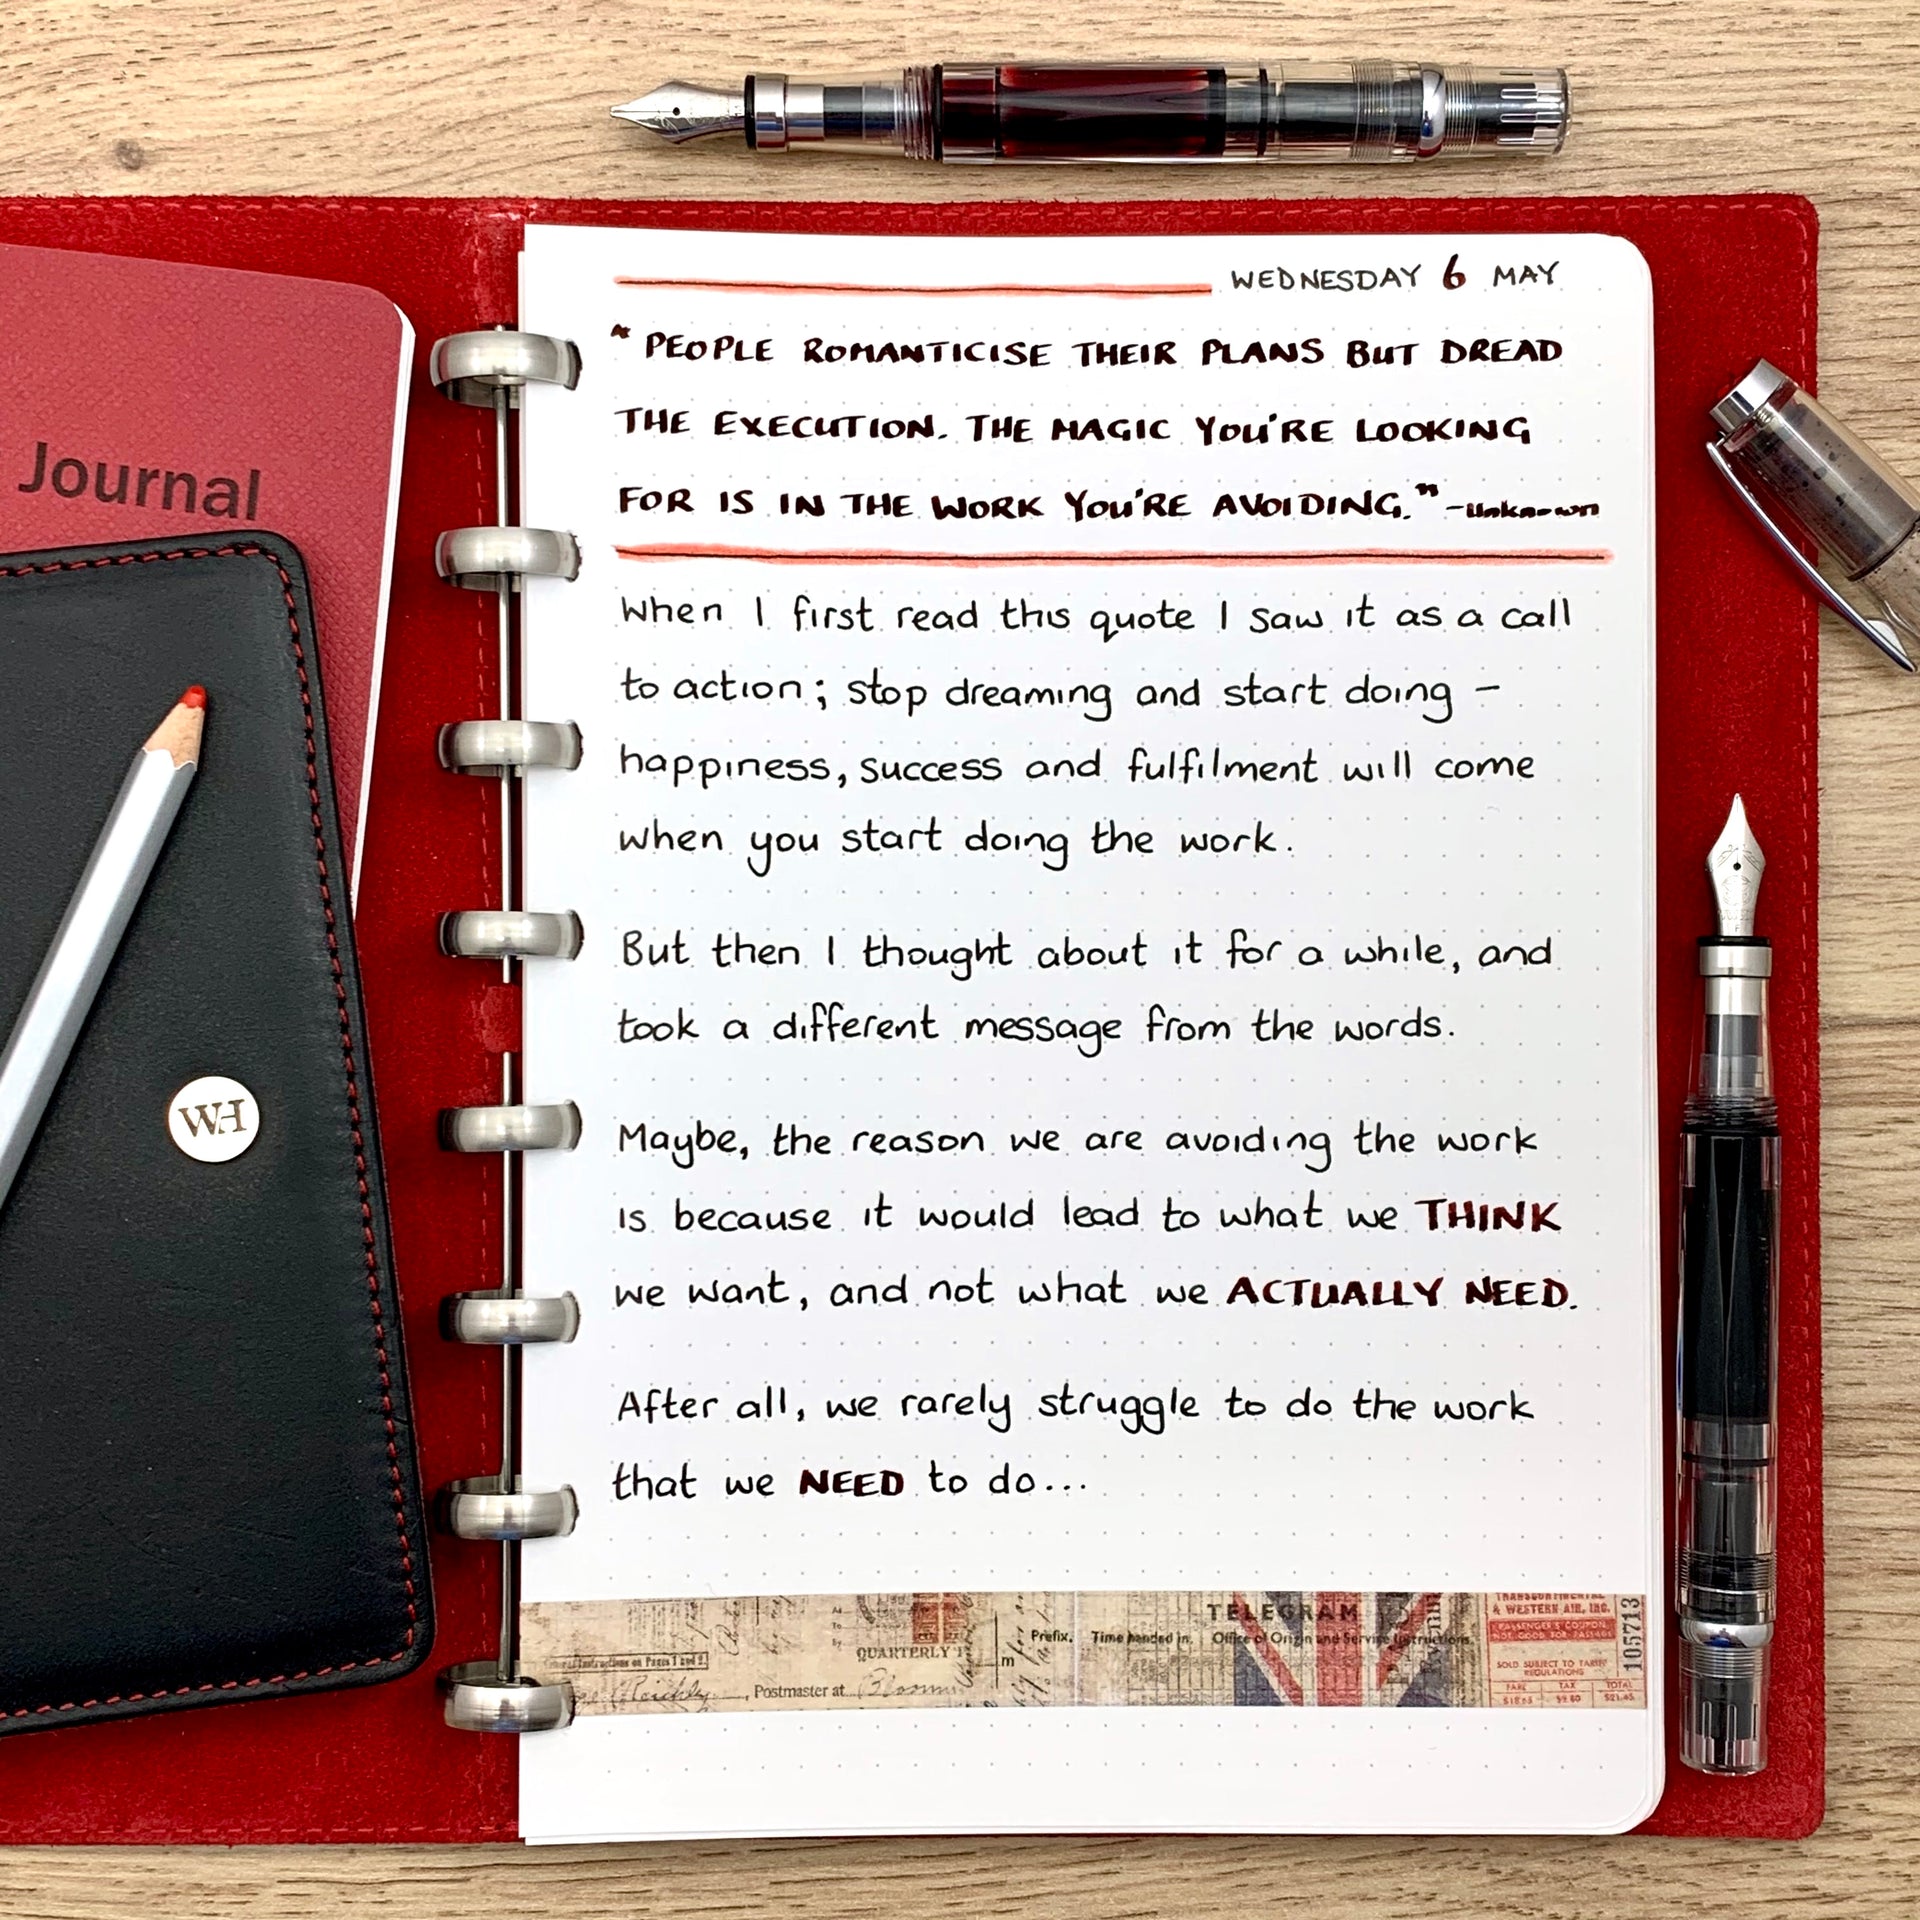 Journal
WH
WEDNESDAY 6 MAY
"PEOPLE ROMANTICISE THEIR PLANS BUT DREAD
THE EXECUTION. THE MAGIC YOU'RE LOOKING
FOR IS IN THE WORK YOU'RE AVOIDING." -Unknown
When I first read this quote I saw it as a call
to action; stop dreaming and start doing -
happiness, success and fulfilment will come
when you start doing the work.
But then I thought about it for a while, and
took a different message from the words.
Maybe, the reason we are avoiding the work
is because it would lead to what we THINK
we want, and not what we ACTUALLY NEED.
After all, we rarely struggle to do the work
that we NEED to do...
TELEGRAM
Prefix. Time handed in. Office of Origin and Service Instructions.
QUARTERLY
m
Instructions on Pages 1 and 2
, Postmaster at
TRANSCONTINENTAL
& WESTERN AIR, INC.
PASSENGER'S COUPON
NOT GOOD FOR PASSAGE
SOLD SUBJECT TO TARIFF
REGULATIONS
FARE TAX TOTAL
105713